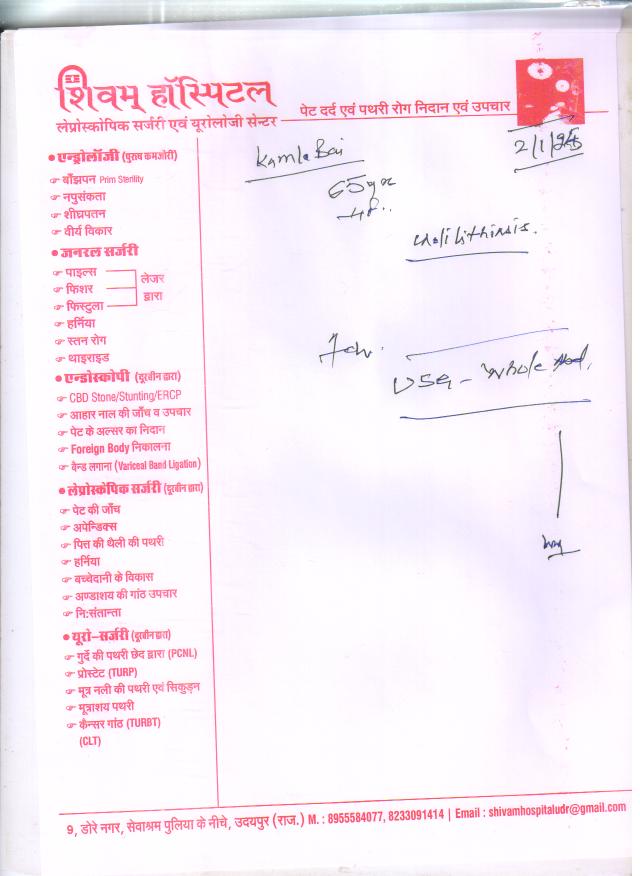 शिवम् हॉस्पिटल
लेप्रोस्कोपिक सर्जरी एवं यूरोलोजी सेन्टर
पेट दर्द एवं पथरी रोग निदान एवं उपचार
Kamla Bai
2/1/25
65 yr
Cholilithirsis.
Adv.
USG - Whole Abd.
• एन्ड्रोलॉजी (पुरूष कमजोरी)
☞ बाँझपन Prim Sterility
☞ नपुसंकता
☞ शीघ्रपतन
☞ वीर्य विकार
• जनरल सर्जरी
☞ पाइल्स
☞ फिशर
☞ फिस्टुला
लेजर
द्वारा
☞ हर्निया
☞ स्तन रोग
☞ थाइराइड
• एन्डोस्कोपी (दूरबीन द्वारा)
☞ CBD Stone/Stunting/ERCP
☞ आहार नाल की जाँच व उपचार
☞ पेट के अल्सर का निदान
☞ Foreign Body निकालना
☞ बैन्ड लगाना (Variceal Band Ligation)
• लेप्रोस्कोपिक सर्जरी (दूरबीन द्वारा)
☞ पेट की जाँच
☞ अपेन्डिक्स
☞ पित्त की थैली की पथरी
☞ हर्निया
☞ बच्चेदानी के विकास
☞ अण्डाशय की गांठ उपचार
☞ नि:संतान्ता
• यूरो-सर्जरी (दूरबीन द्वारा)
☞ गुर्दे की पथरी छेद द्वारा (PCNL)
☞ प्रोस्टेट (TURP)
☞ मूत्र नली की पथरी एवं सिकुड़न
☞ मूत्राशय पथरी
☞ कैन्सर गांठ (TURBT)
(CLT)
9, डोरे नगर, सेवाश्रम पुलिया के नीचे, उदयपुर (राज.) M. : 8955584077, 8233091414 | Email : shivamhospitaludr@gmail.com